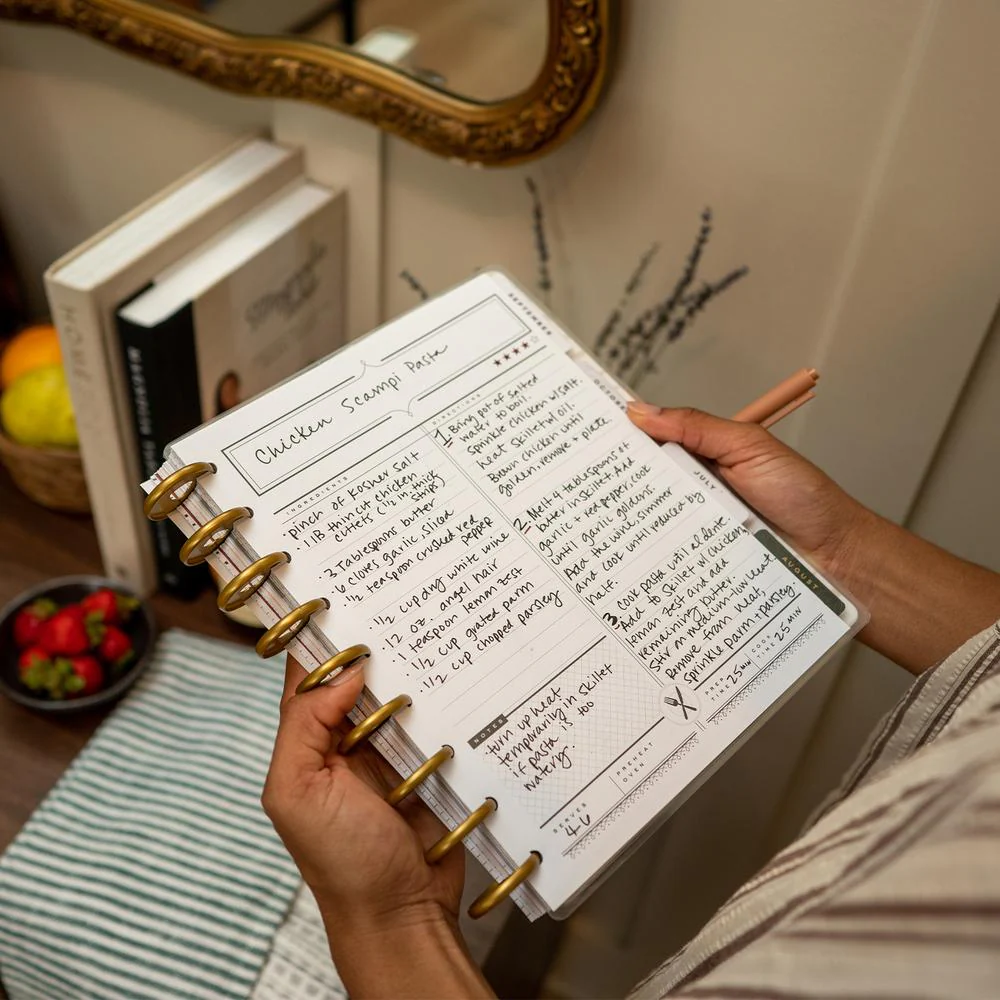 HOME
SEPTEMBER
Chicken Scampi Pasta
★★★★☆
INGREDIENTS
· pinch of kosher salt
· 1 lb thin cut chicken
cutlets (1/2 in thick
strips)
· 3 tablespoons butter
· 6 cloves garlic, sliced
· 1/2 teaspoon crushed red
pepper
· 1/2 cup dry white wine
· 12 oz. angel hair
· 1 teaspoon lemon zest
· 1/2 cup grated parm
· 1/2 cup chopped parsley
DIRECTIONS
1. Bring pot of salted
water to boil.
sprinkle chicken w/salt.
heat skillet w/ oil.
Brown chicken until
golden, remove + plate.
2. Melt 4 tablespoons of
butter in skillet. Add
garlic + red pepper, cook
until garlic goldens.
Add the wine, simmer
and cook until reduced by
half.
3. Cook pasta until al dente.
Add to skillet w/ chicken,
lemon zest and add
remaining butter.
Stir on medium-low heat.
Remove from heat,
sprinkle parm + parsley
NOTES
turn up heat
temporarily in skillet
if pasta is too
watery.
PREP TIME 25 MIN
COOK TIME 25 MIN
SERVES
PREHEAT OVEN
OCTOBER
JULY
AUGUST